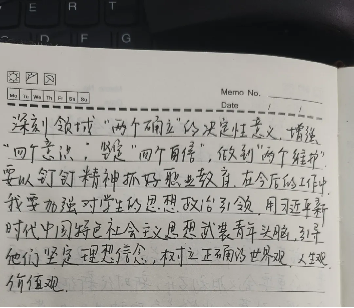 E R T
Mo Tu We Th Fr Sa Su
Memo No.
Date / /
深刻领域“两个确立”的决定性意义,增强
“四个意识”,坚定“四个自信”,做到“两个维护”
要以钉钉精神抓好职业教育,在今后的工作中
我要加强对学生的思想政治引领,用习近平新
时代中国特色社会主义思想武装青年头脑,引导
他们坚定理想信念,树立正确的世界观、人生观、
价值观.